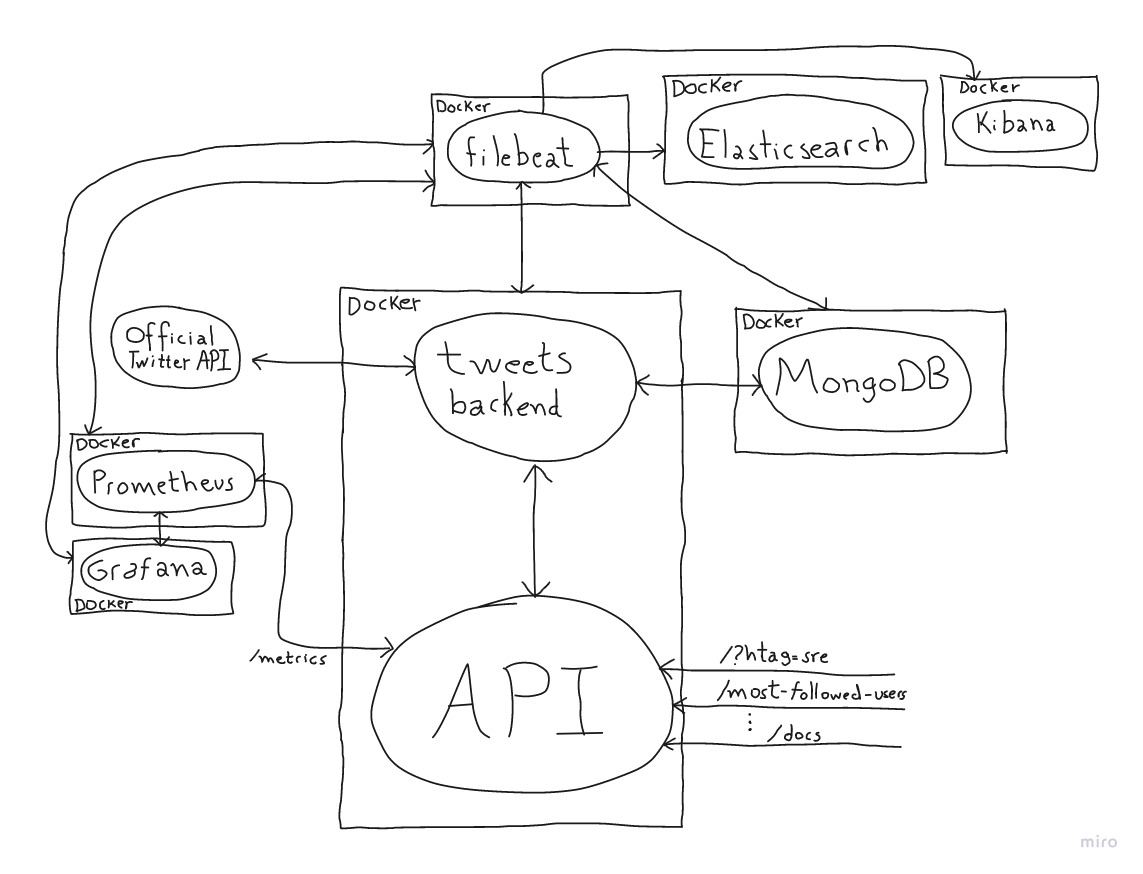 Docker
filebeat
Docker
Elasticsearch
Docker
Kibana
Docker
tweets
backend
Official
Twitter API
Docker
MongoDB
Docker
Prometheus
Grafana
Docker
/metrics
API
/?htag=sre
/most-followed-users
⋮
/docs
miro